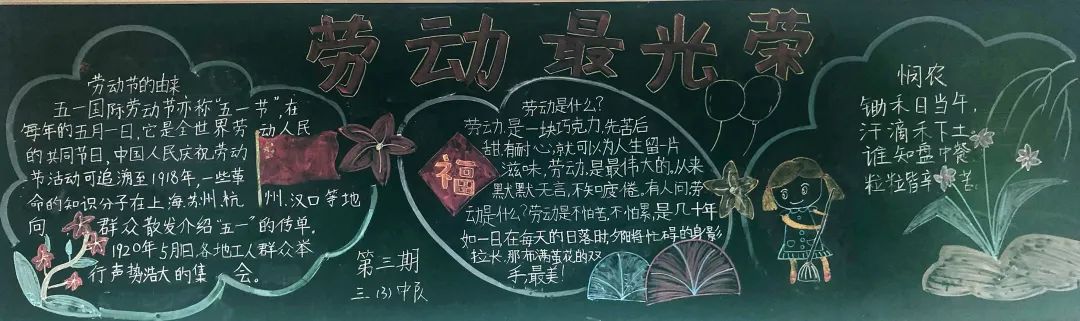 劳动最光荣
劳动节的由来
五一国际劳动节亦称"五一节",在
每年的五月一日,它是全世界劳动人民
的共同节日,中国人民庆祝劳动
节活动可追溯至1918年,一些革
命的知识分子在上海.苏州.杭州.汉口等地
向大群众散发介绍"五一"的传单.
1920年5月1日,各地工人群众举
行声势浩大的集会。
劳动是什么?
劳动.是一块巧克力,先苦后
甜.有耐心,就可以为人生留一片
滋味,劳动,是最伟大的,从来
默默无言,不知疲倦.有人问劳
动是什么?劳动是不怕苦,不怕累,是几十年
如一日,在每天的日落时,夕阳将忙碌的身影
拉长.那布满茧花的双
手,最美!
福
第三期
三.(3)中队
悯农
锄禾日当午,
汗滴禾下土
谁知盘中餐
粒粒皆辛苦